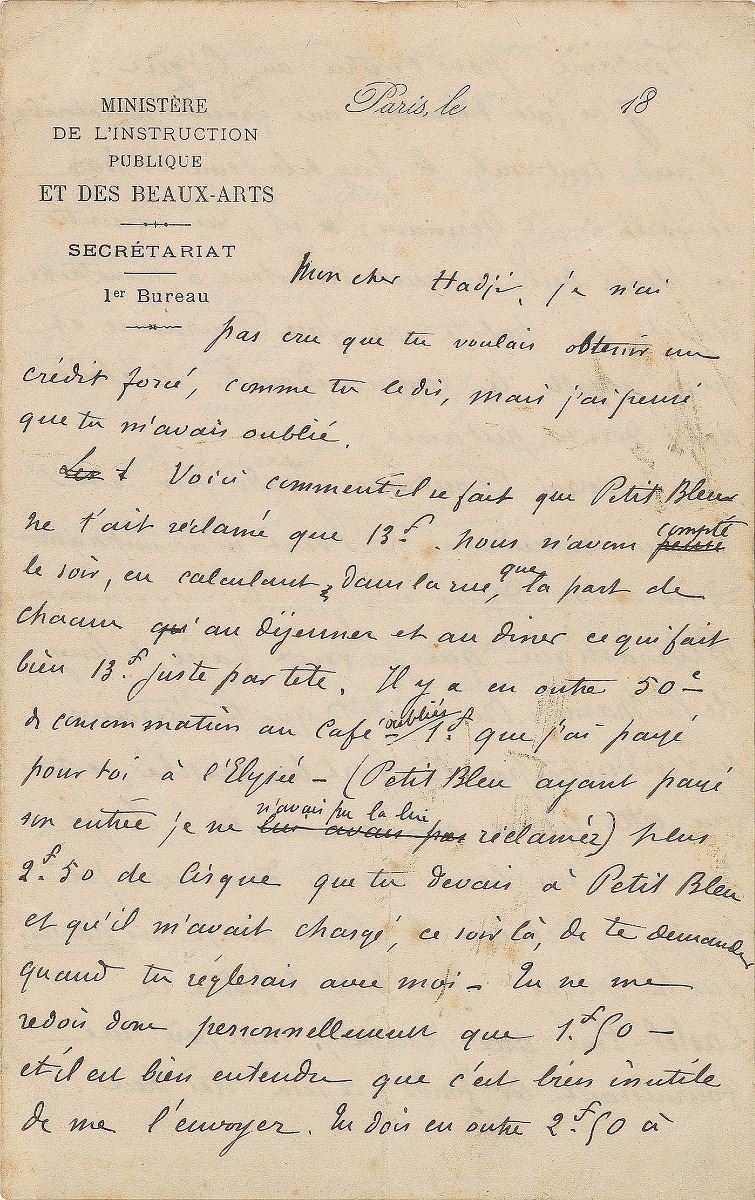 MINISTÈRE
DE L'INSTRUCTION
PUBLIQUE
ET DES BEAUX-ARTS
SECRÉTARIAT
1er Bureau
Paris, le 18
Mon cher Hadji, je n'ai
pas cru que tu voulais obtenir un
crédit forcé, comme tu le dis, mais j'ai pensé
que tu m'avais oublié.
Voici comment il se fait que Petit Bleu
ne t'ait réclamé que 13.f. Nous n'avons compté
le soir, en calculant, dans la rue, que la part de
chacun qu' au déjeuner et au diner ce qui fait
bien 13.f juste par tete. Il y a en outre 50c
de consommation au Café oubliés 1.f que j'ai payé
pour toi à l'Elysée – (Petit Bleu ayant payé
son entrée je ne n'avais pu la lui lui avais pas réclamée) plus
2.f50 de Cisque que tu devais à Petit Bleu
et qu'il m'avait chargé, ce soir là, de te demander
quand tu réglerais avec moi – Tu ne me
redois donc personnellement que 1.f50 –
et il est bien entendu que c'est bien inutile
de me l'envoyer. Tu dois en outre 2.f50 à